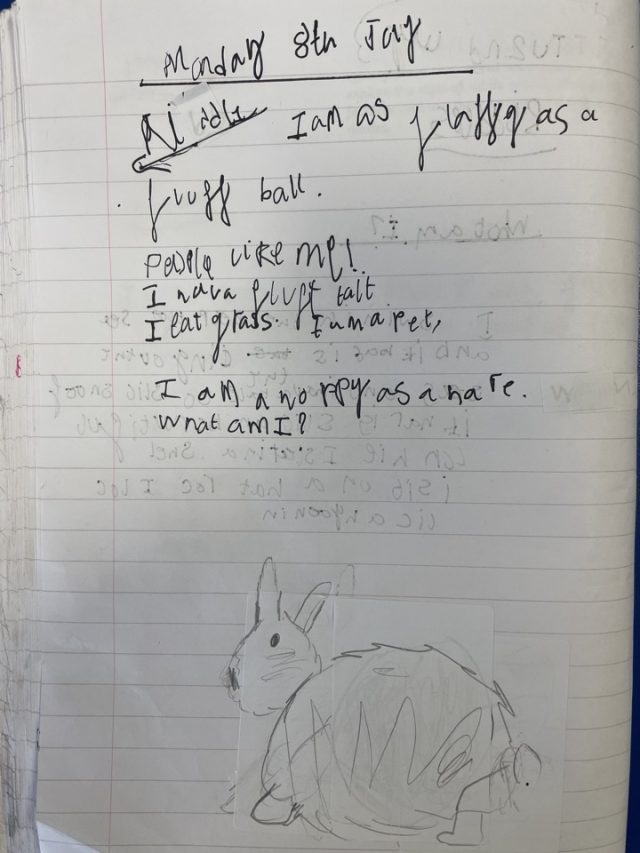 Monday 8th July
Riddle I am as fluffy as a
fluff ball.
People like me!
I hava fluff tail
I eat grass. I am a pet,
I am a hoppy as a hare.
What am I?